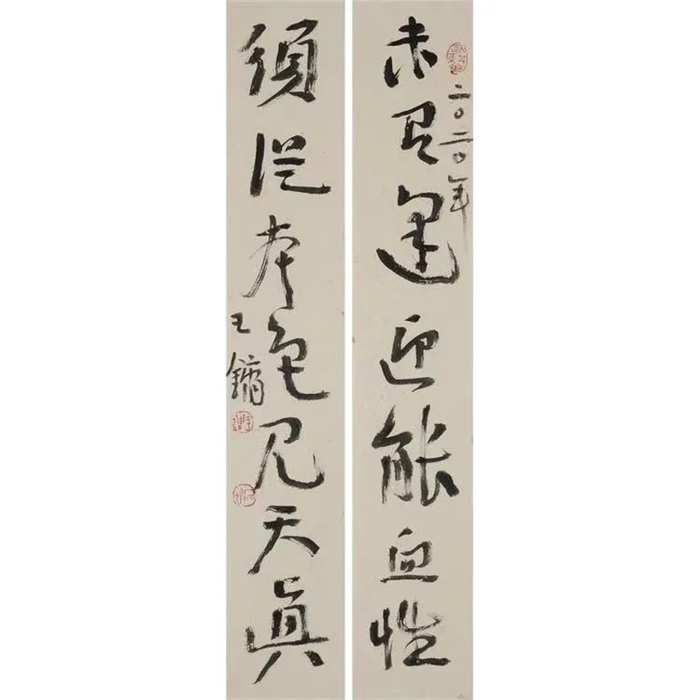 未有逢迎能血性
二〇二〇年
須從本色見天眞
王鏞